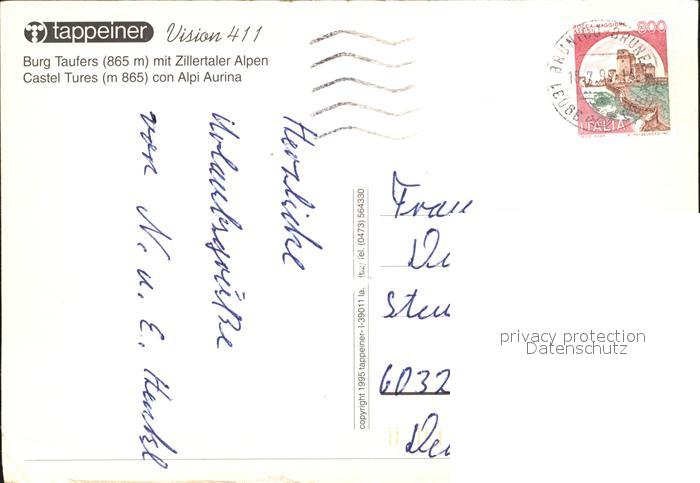 tappeiner Vision 411
Burg Taufers (865 m) mit Zillertaler Alpen
Castel Tures (m 865) con Alpi Aurina
Herzliche
Urlaubsgrüße
von N. u. E. Henkel
copyright 1995 tappeiner- I-39011 la. (bz) Tel. (0473) 564330
ROCCA MAGGIORE
800
ITALIA
39031 BRUNICO-BRUNECK
Frau
6032
privacy protection
Datenschutz